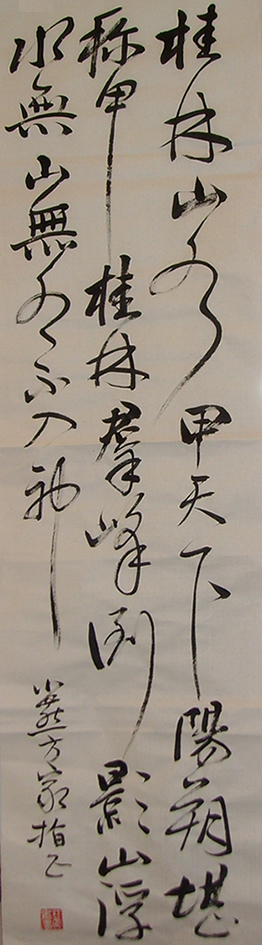 桂林山水甲天下陽朔堪
称甲桂林羣峰倒影山浮
水無山無水不入神
小燕方家指正